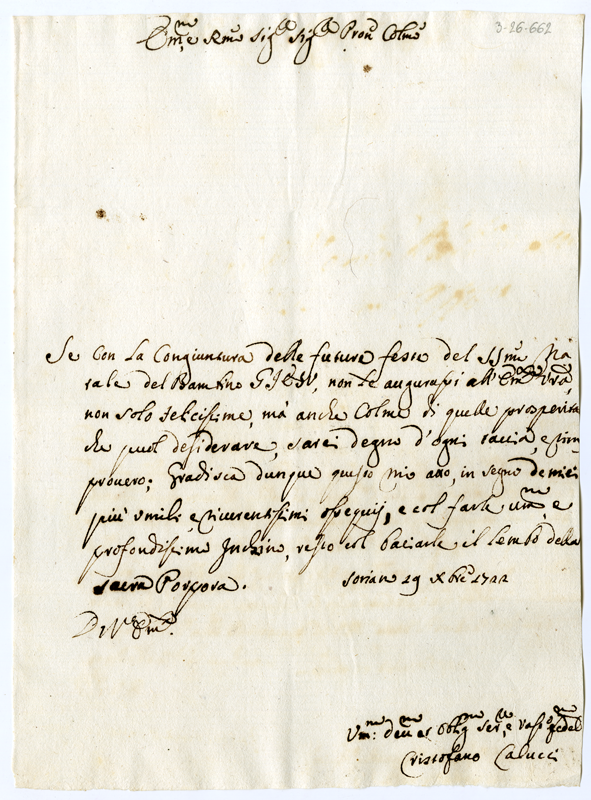 3-26-662
Em.mo e Rmo Sig.re Sig.re Pron Colmo
Se con la Congiuntura delle future feste del SSmo Na
tale del Bambino GIESV, non le augurassi all'Em.za Vra
non solo felicissime, mà anche Colme di quelle prosperità
che puol desiderare, sarei degno d'ogni taccia, e rim
provero; Gradisca dunque questo mio atto, in segno de miei
più umili, e riverentissimi ossequij, e col farle um.mo e
profondissimo Inchino, resto col baciarle il lembo della
sacra Porpora. Sorian 19 Xbre 1722
Di V.ra Em.za
Vm.mo dev.mo et Obblig.mo ser.re e vass.o fedel.mo
Cristofano Calucci